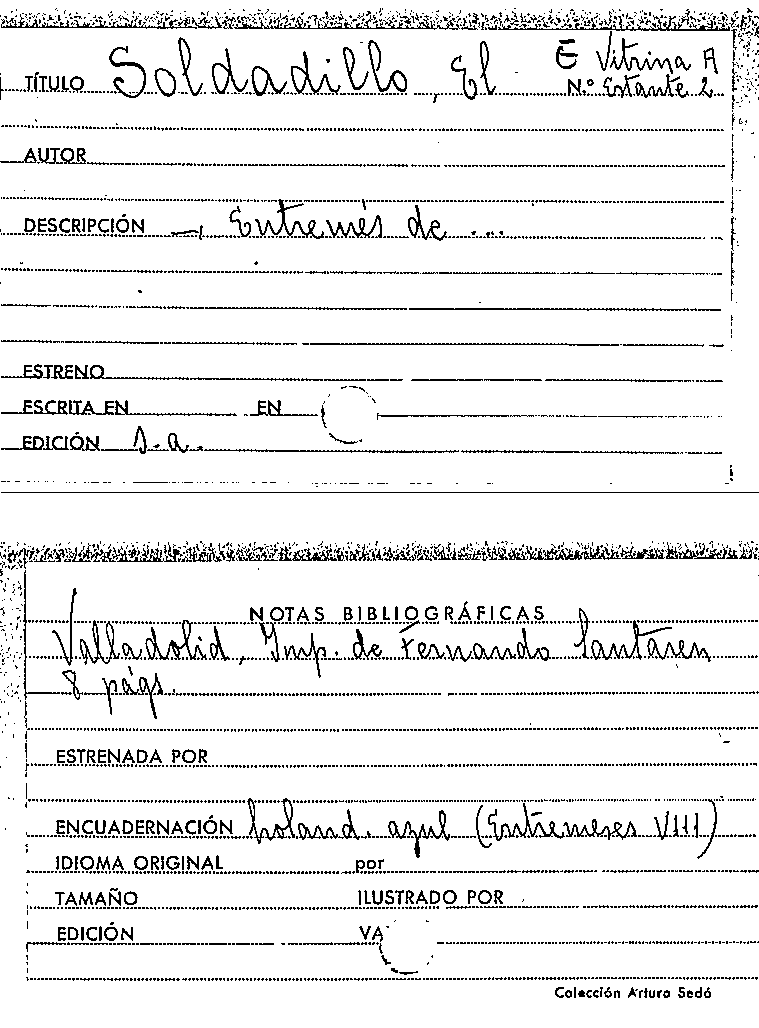 E Vitrina A
TÍTULO Soldadillo, El N.º Estante 2
AUTOR
DESCRIPCIÓN —, Entremés de ...
ESTRENO
ESCRITA EN EN
EDICIÓN s.a.
NOTAS BIBLIOGRÁFICAS
Valladolid, Imp. de Fernando Santaren
8 págs.
ESTRENADA POR
ENCUADERNACIÓN holand. azul (Entremeses VIII)
IDIOMA ORIGINAL por
TAMAÑO ILUSTRADO POR
EDICIÓN VA
Colección Arturo Sedó